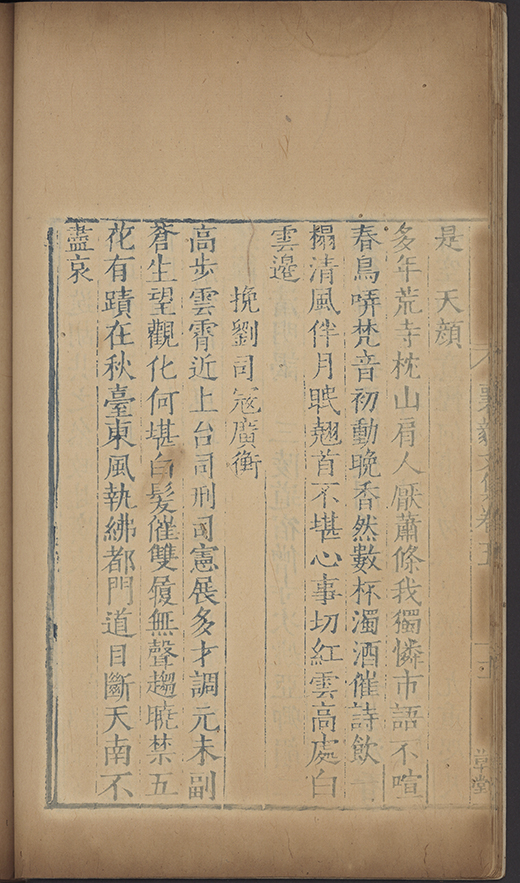 是　天顏
多年荒寺枕山肩人厭蕭條我獨憐市語不喧
春鳥哢梵音初動晚香然數杯濁酒催詩飲一
榻清風伴月眠翹首不堪心事切紅雲高處白
雲邊
挽劉司寇廣衡
高步雲霄近上台司刑司憲展多才調元未副
蒼生望觀化何堪白髮催雙履無聲趨曉禁五
花有蹟在秋臺東風執紼都門道目斷天南不
盡哀
襄毅文集卷五
草堂